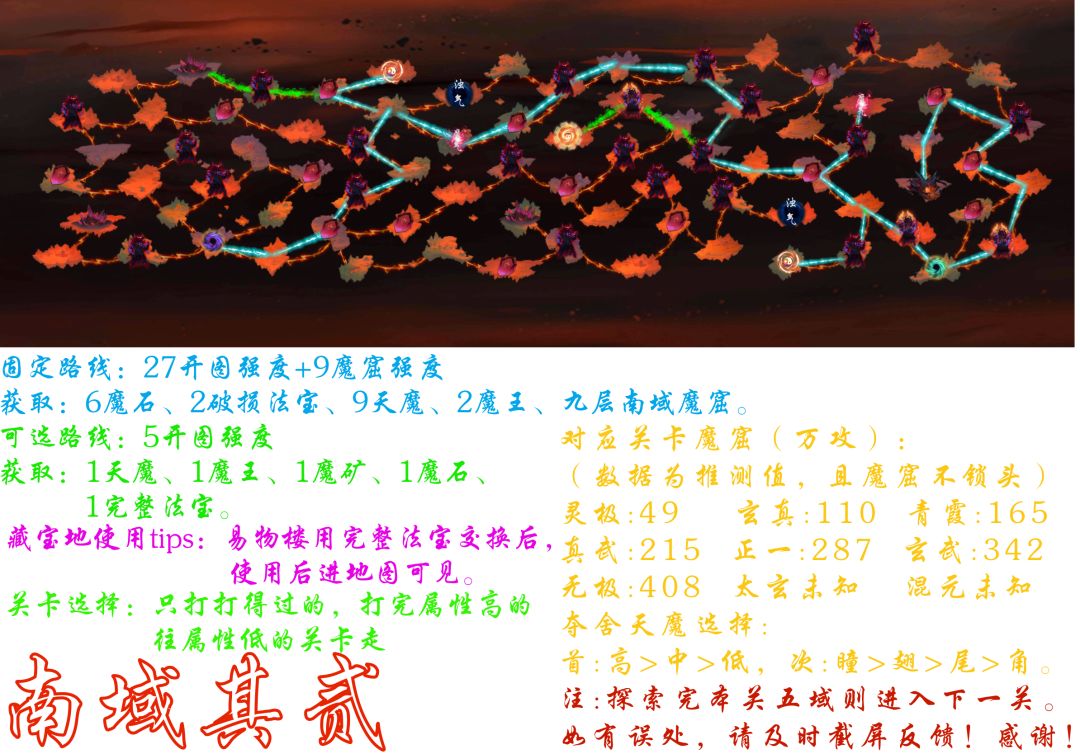 浊气
浊气
固定路线：27开图强度+9魔窟强度
获取：6魔石、2破损法宝、9天魔、2魔王、九层南域魔窟。
可选路线：5开图强度
获取：1天魔、1魔王、1魔矿、1魔石、
1完整法宝。
藏宝地使用tips：易物楼用完整法宝交换后，
使用后进地图可见。
关卡选择：只打打得过的，打完属性高的
往属性低的关卡走
南域其贰
对应关卡魔窟（万攻）：
（数据为推测值，且魔窟不锁头）
灵极:49 玄真:110 青霞:165
真武:215 正一:287 玄武:342
无极:408 太玄未知 混元未知
夺舍天魔选择:
首:高>中>低，次:瞳>翅>尾>角。
注:探索完本关五域则进入下一关。
如有误处，请及时截屏反馈！感谢！